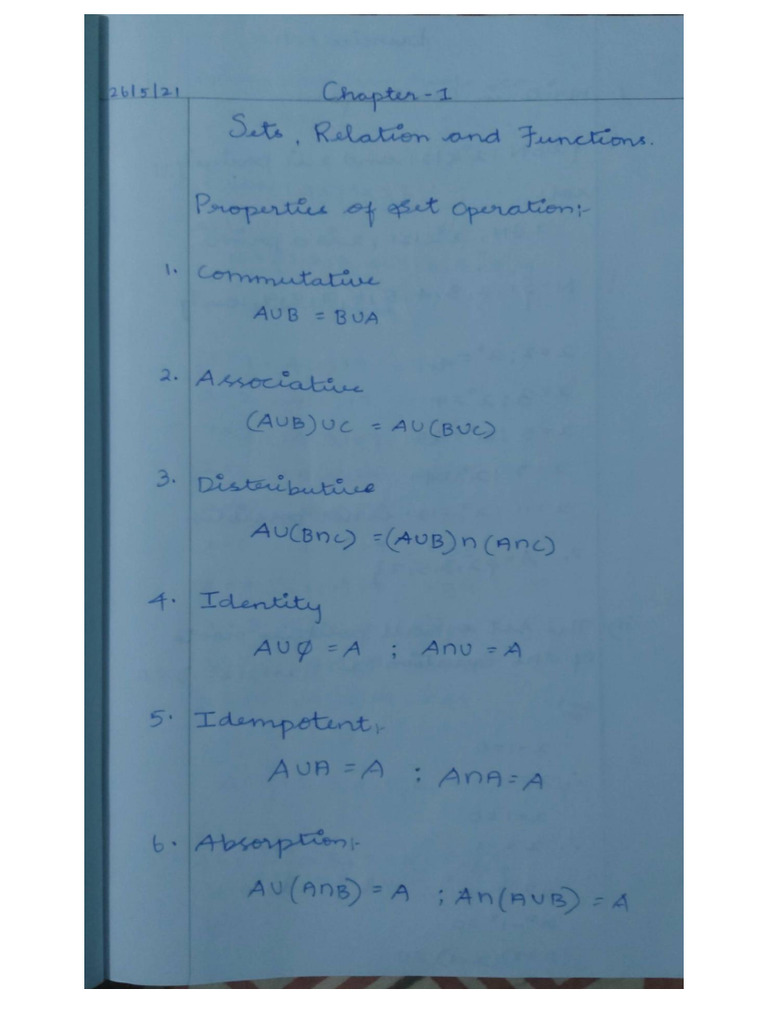 26/5/21 Chapter-1
Sets, Relation and Functions.
Properties of Set Operation:-
1. Commutative
A∪B = B∪A
2. Associative
(A∪B)∪C = A∪(B∪C)
3. Distributive
A∪(B∩C) = (A∪B)∩(A∩C)
4. Identity
A∪φ = A ; A∩U = A
5. Idempotent:-
A∪A = A ; A∩A = A
6. Absorption:-
A∪(A∩B) = A ; A∩(A∪B) = A